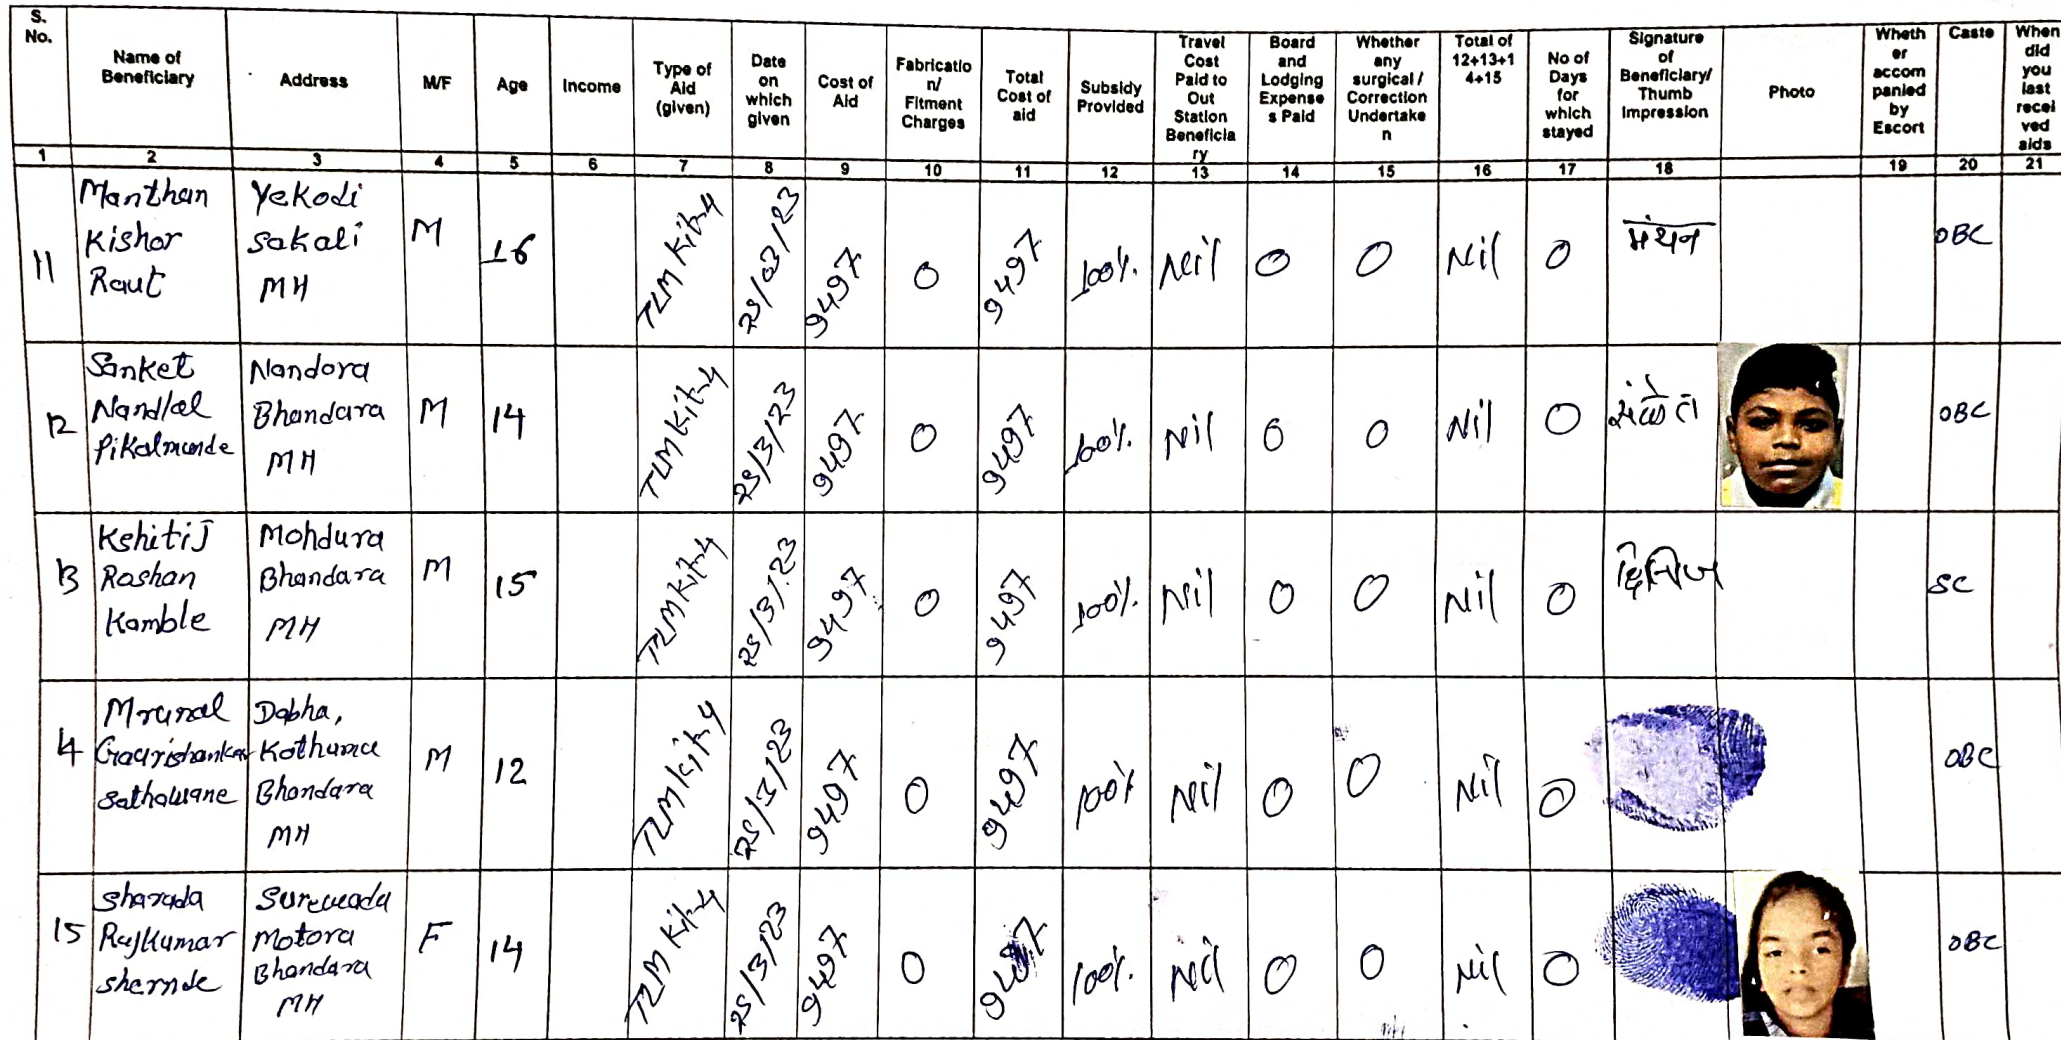 S. No.
Name of Beneficiary
Address
M/F
Age
Income
Type of Aid (given)
Date on which given
Cost of Aid
Fabricatio n/ Fitment Charges
Total Cost of aid
Subsidy Provided
Travel Cost Paid to Out Station Beneficia ry
Board and Lodging Expense s Paid
Whether any surgical / Correction Undertake n
Total of 12+13+1 4+15
No of Days for which stayed
Signature of Beneficiary/ Thumb Impression
Photo
Wheth er accom panied by Escort
Caste
When did you last recei ved aids
1 2 3 4 5 6 7 8 9 10 11 12 13 14 15 16 17 18 19 20 21
11 Manthan Kishor Raut Yekodi Sakali MH M 16 TLM Kit-4 25/03/23 9497 0 9497 100% Nil 0 0 Nil 0 मंथन OBC
12 Sanket Nandlal Pikalmunde Nandora Bhandara MH M 14 TLM Kit-4 25/3/23 9497 0 9497 100% Nil 0 0 Nil 0 OBC
13 Kshitij Roshan Kamble Mohdura Bhandara MH M 15 TLM Kit-4 25/3/23 9497 0 9497 100% Nil 0 0 Nil 0 SC
14 Mrunal Gaurishankar Sathawane Dabha, Kothurna Bhandara MH M 12 TLM Kit-4 25/3/23 9497 0 9497 100% Nil 0 0 Nil 0 OBC
15 Sharada Rajkumar Shernde Surewada Motora Bhandara MH F 14 TLM Kit-4 25/3/23 9497 0 9497 100% Nil 0 0 Nil 0 OBC